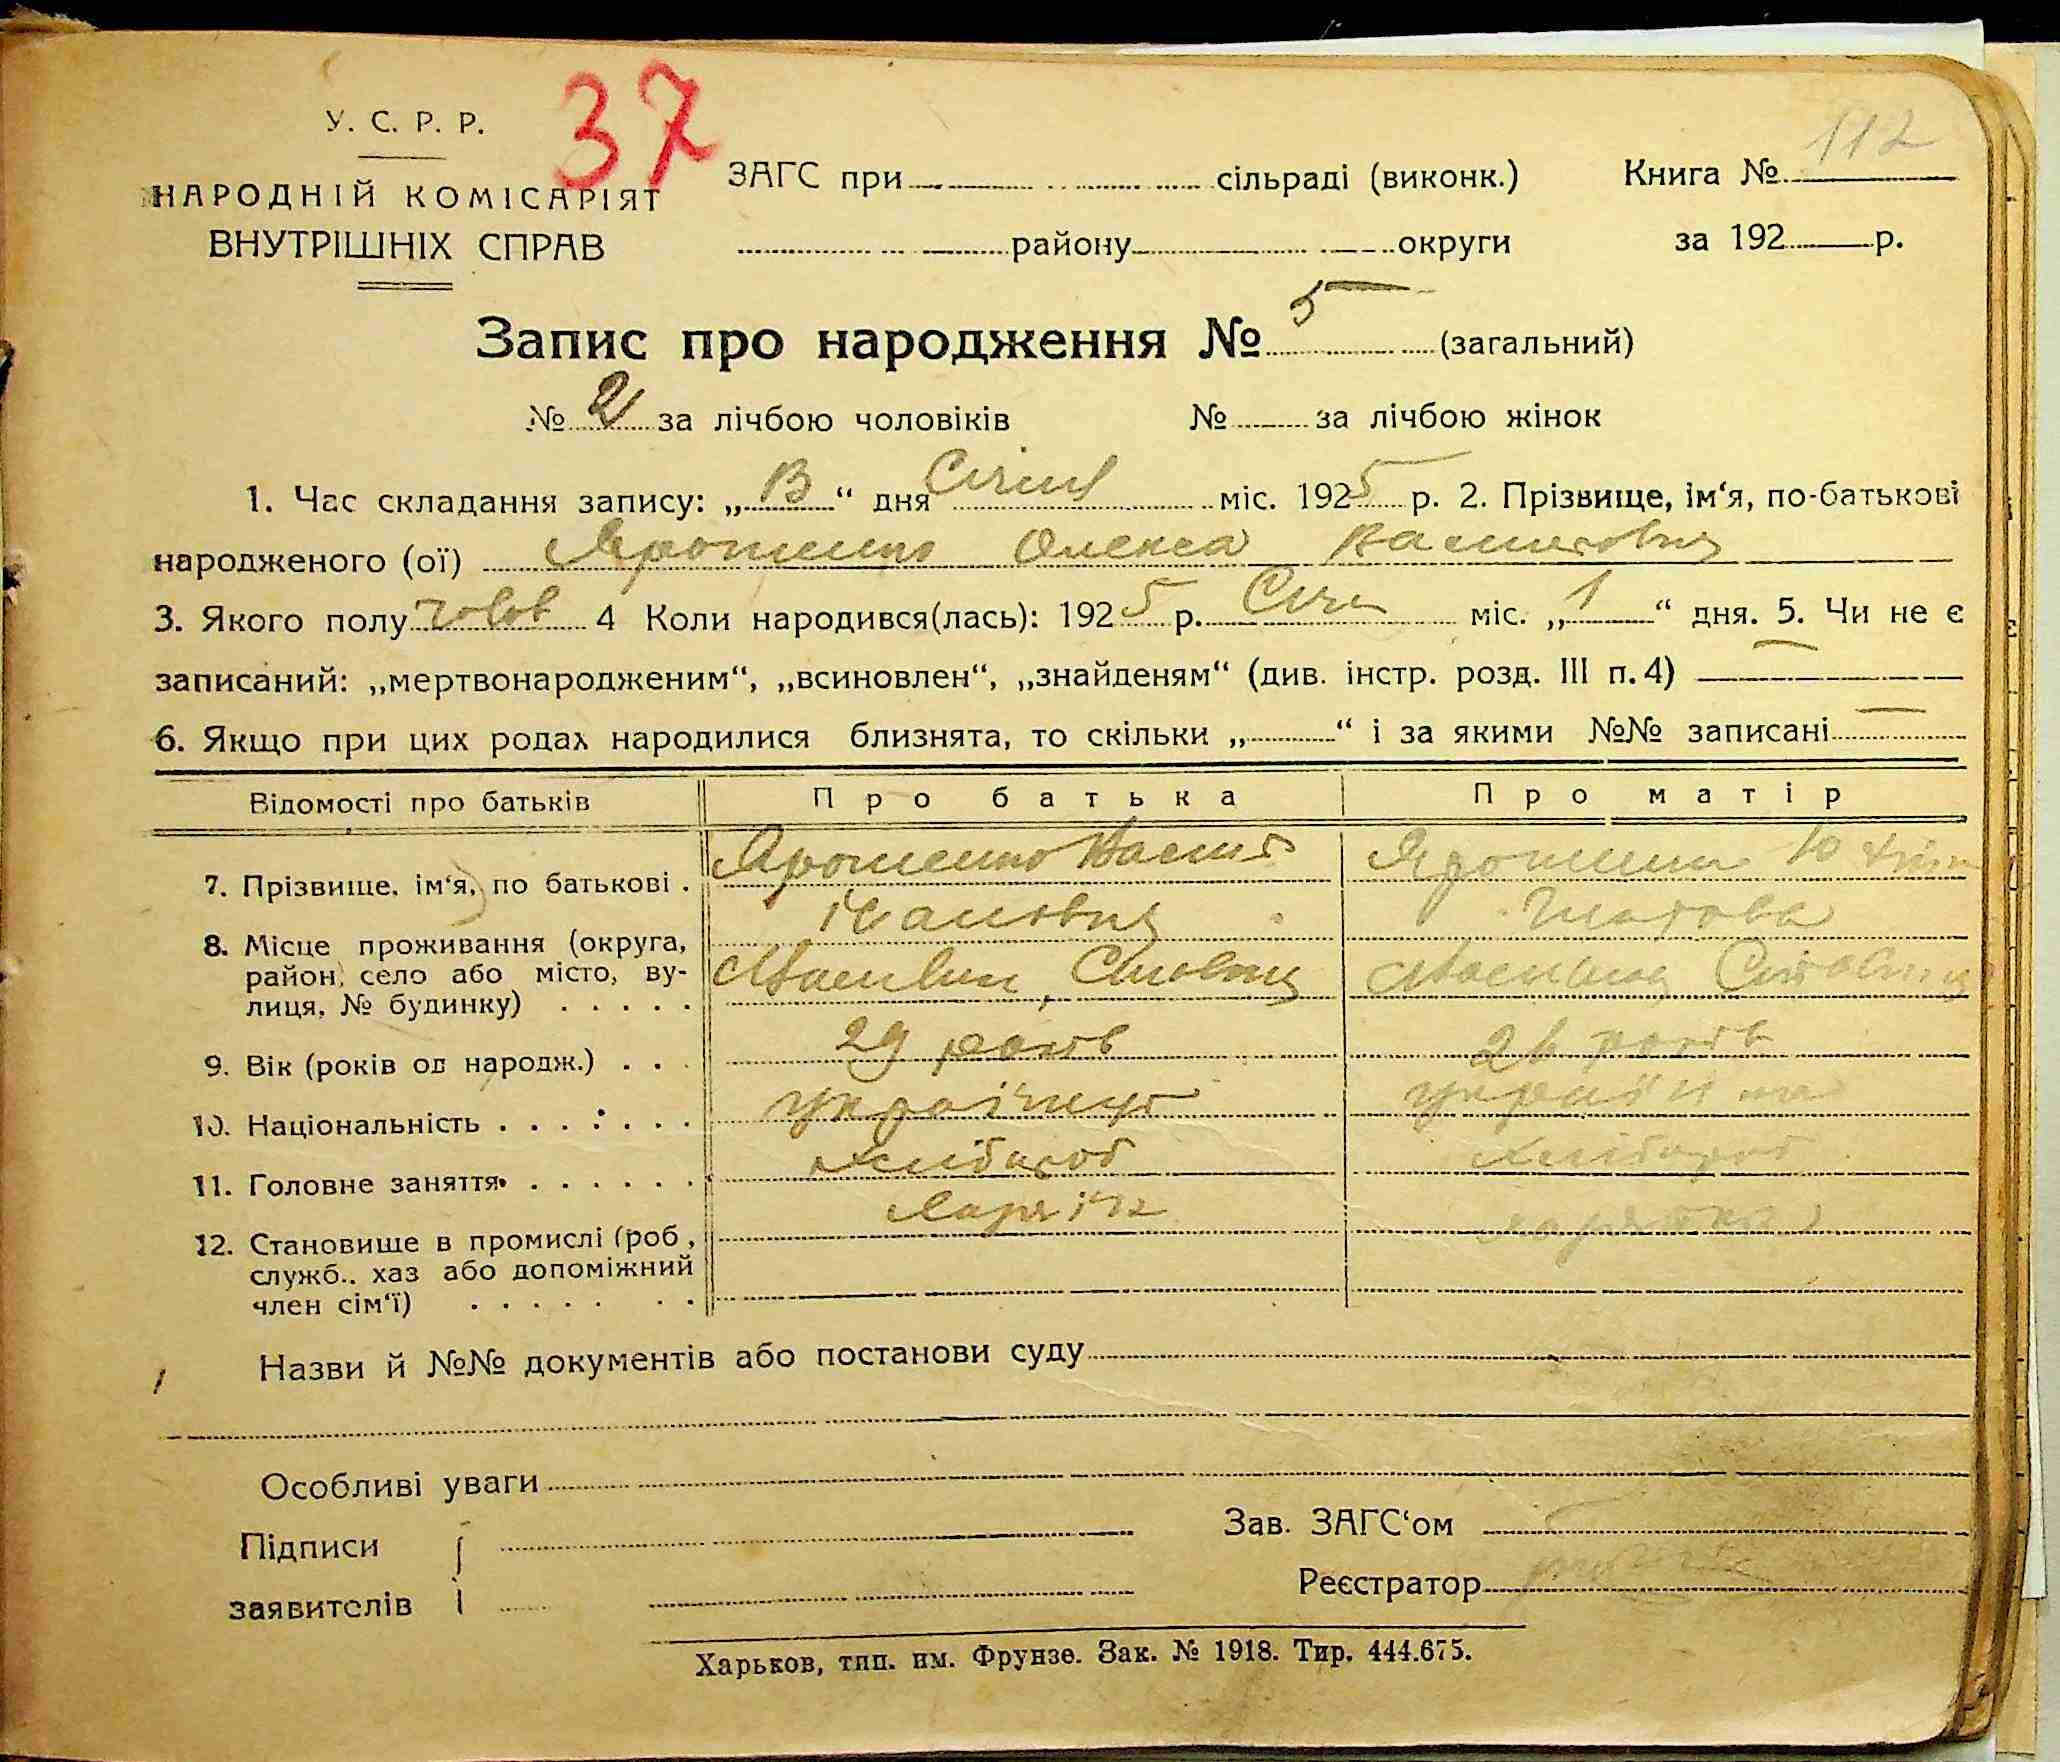 37
112
У. С. Р. Р.
НАРОДНІЙ КОМІСАРІЯТ
ВНУТРІШНІХ СПРАВ
ЗАГС при сільраді (виконк.) Книга №
району округи за 192 р.
Запис про народження № 5 (загальний)
№ 2 за лічбою чоловіків № за лічбою жінок
1. Час складання запису: „ “ дня Січня міс. 1925 р. 2. Прізвище, ім‘я, по-батькові
народженого (ої) Ярошенко Олекса Васильович
3. Якого полу чолов 4 Коли народився(лась): 1925 р. Січ міс. „1“ дня. 5. Чи не є
записаний: „мертвонародженим“, „всиновлен“, „знайденям“ (див. інстр. розд. III п. 4) —
6. Якщо при цих родах народилися близнята, то скільки „ “ і за якими №№ записані —
Відомості про батьків Про батька Про матір
7. Прізвище, ім‘я, по батькові . Ярошенко Василь Ярошенко
Іванович
8. Місце проживання (округа,
район, село або місто, ву-
лиця, № будинку) . . . . .
9. Вік (років од народж.) . . . 29 років 26 років
10. Національність . . . . . . . українець українка
11. Головне заняття . . . . . . . хлібороб хлібороб
12. Становище в промислі (роб.,
служб., хаз або допоміжний
член сім‘ї) . . . . . . .
Назви й №№ документів або постанови суду
Особливі уваги
Підписи
заявителів
Зав. ЗАГС‘ом
Реєстратор
Харьков, тип. им. Фрунзе. Зак. № 1918. Тир. 444.675.